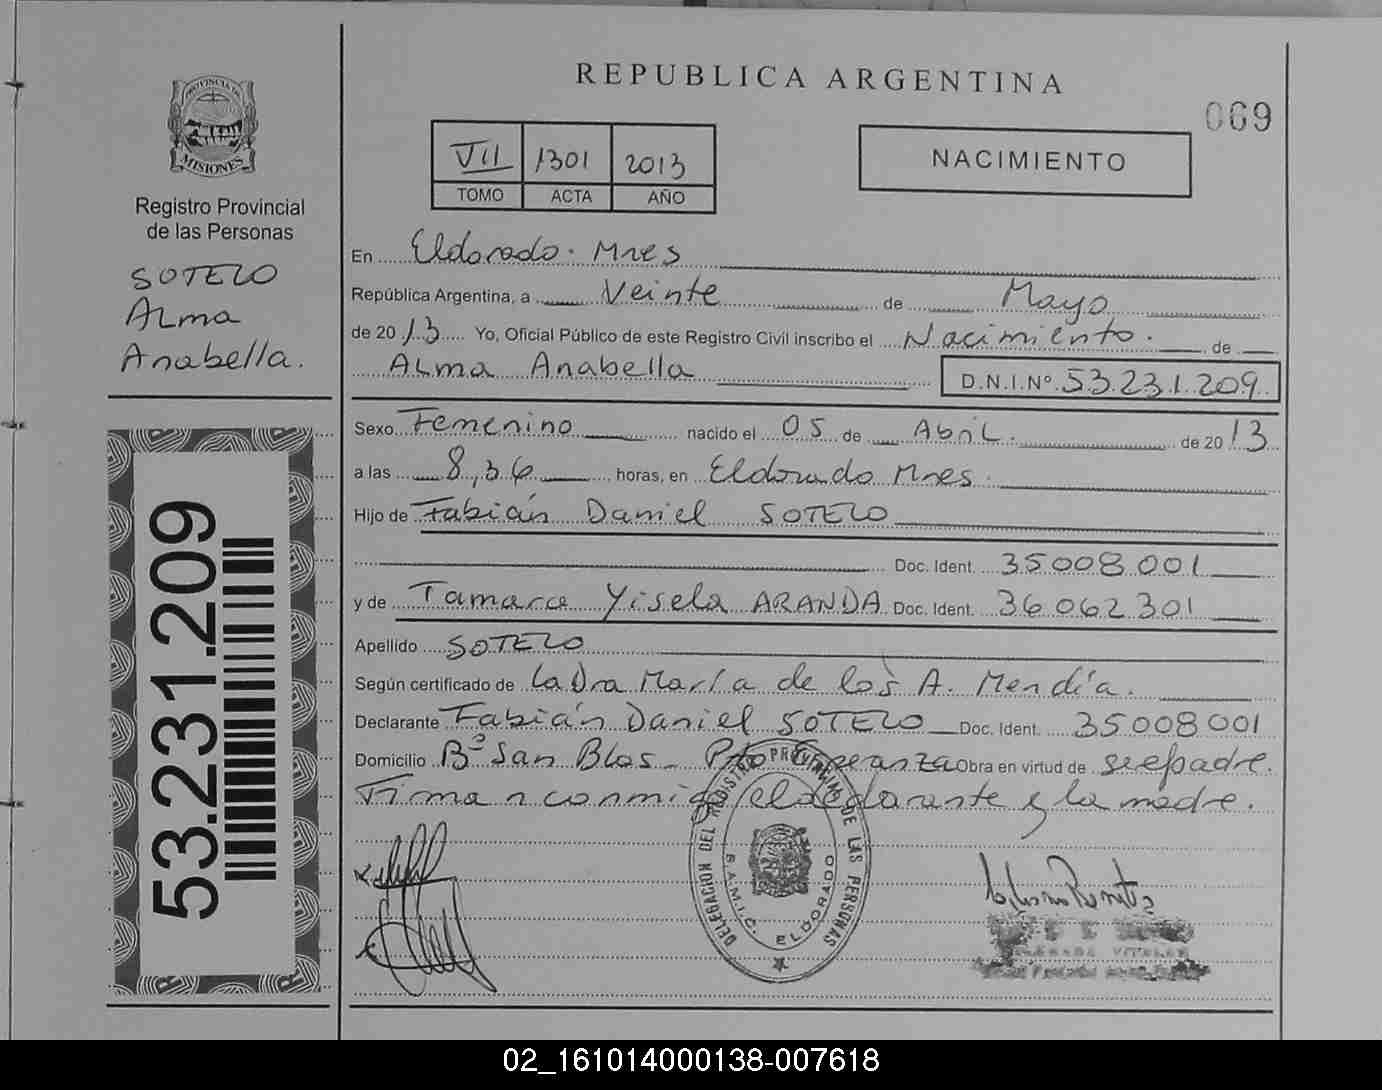 REPUBLICA ARGENTINA
069
PROVINCIA DE
MISIONES
Registro Provincial
de las Personas
SOTELO
ALma
Anabella.
53.231.209
VII 1301 2013
TOMO ACTA AÑO
NACIMIENTO
En Eldorado. Mnes
República Argentina, a Veinte de Mayo
de 2013 Yo, Oficial Público de este Registro Civil inscribo el Nacimiento. de
ALma Anabella D.N.I.Nº 53.231.209
Sexo Femenino nacido el 05 de Abril. de 2013
a las 8,36 horas, en Eldorado Mnes.
Hijo de Fabián Daniel SOTELO
Doc. Ident. 35008001
y de Tamara Yisela ARANDA Doc. Ident. 36.062.301
Apellido SOTELO
Según certificado de La Dra María de los A. Mendía.
Declarante Fabián Daniel SOTELO Doc. Ident. 35008001
Domicilio Bº San Blas - Pto Esperanza Obra en virtud de ser padre.
Firman conmigo el declarante y la madre.
DELEGACION DEL REGISTRO PROVINCIAL DE LAS PERSONAS
S.A.M.I.C. ELDORADO
02_161014000138-007618